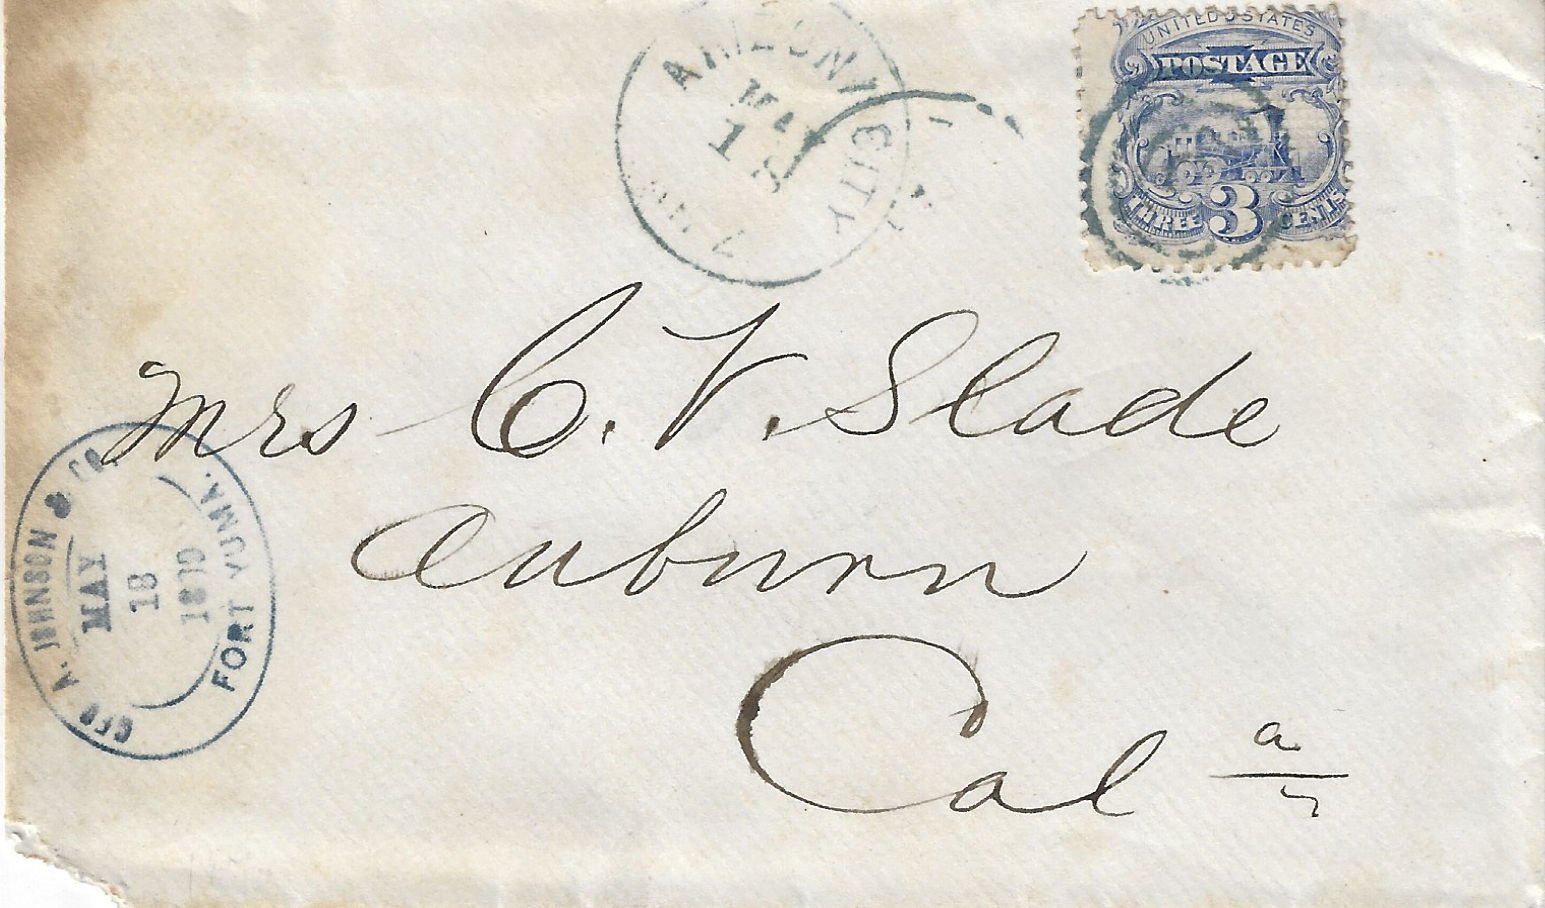 ARIZONA CITY
MAY
18
ARIZ
UNITED STATES
POSTAGE
THREE 3 CENTS
Mrs C. V. Slade
Auburn
Cal a
GEO. A. JOHNSON & CO.
MAY
18
1870
FORT YUMA.